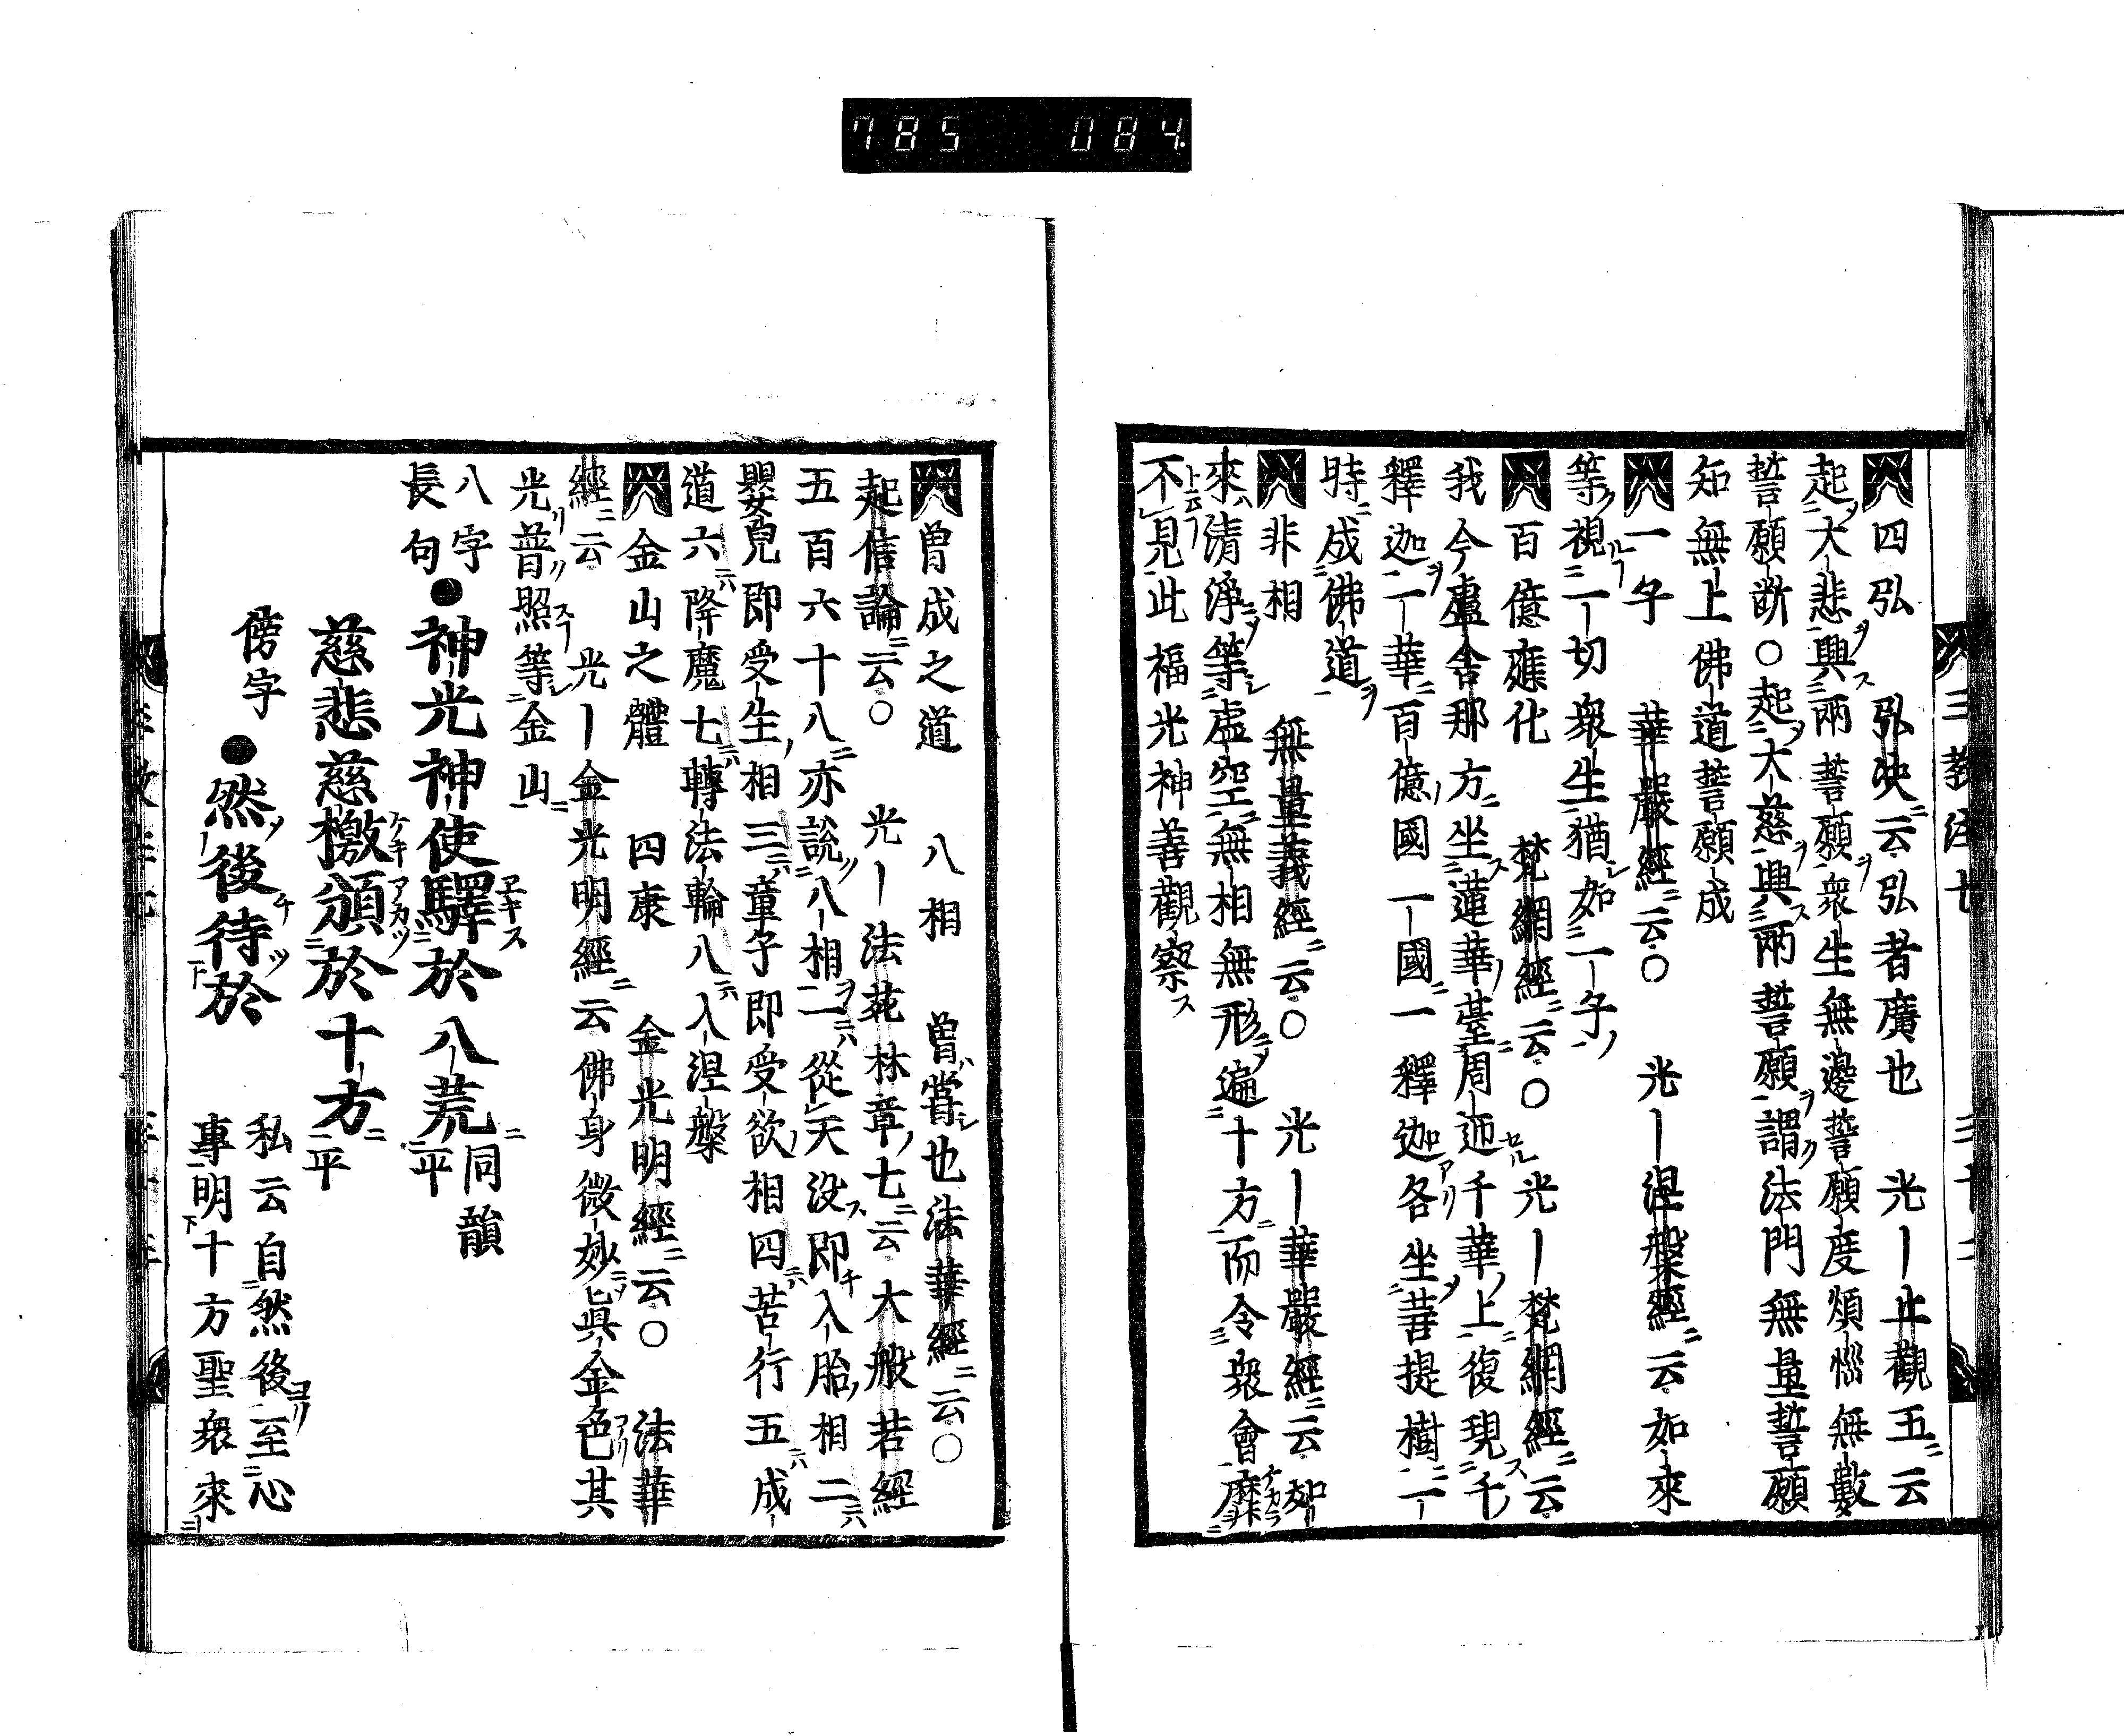 785 084
四弘 弘决ニ云弘者廣也 光ー止觀五ニ云
起大悲興兩誓願衆生無邊誓願度煩惱無數
誓願断○起大慈興兩誓願謂法門無量誓願
知無上佛道誓願成
一子 華嚴經ニ云○ 光ー涅槃經ニ云如來
等視一切衆生猶如一子
百億應化 梵網經ニ云○ 光ー梵網經ニ云
我今盧舍那方坐蓮華臺周迊千華上復現千
釋迦一華百億國一國一釋迦各坐菩提樹一
時成佛道
非相 無量義經ニ云○ 光ー華嚴經ニ云如
來清淨等虚空無相無形遍十方而令衆會靡
不見此福光神善觀察
曽成之道 八相 曽嘗也法華經ニ云○
起信論ニ云○ 光ー法苑林章七ニ云大般若經
五百六十八ニ亦説八相一從天没即入胎相二
嬰皃即受生相三童子即受欲相四苦行五成
道六降魔七轉法輪八入涅槃
金山之體 四康 金光明經ニ云○ 法華
經ニ云 光ー金光明經ニ云佛身微妙眞金色其
光普照等金山
八字
長句●神光神使驛於八荒平 同韻
慈悲慈檄頒於十方平
傍字 ●然後待於 私云自然後至心
專明十方聖衆來